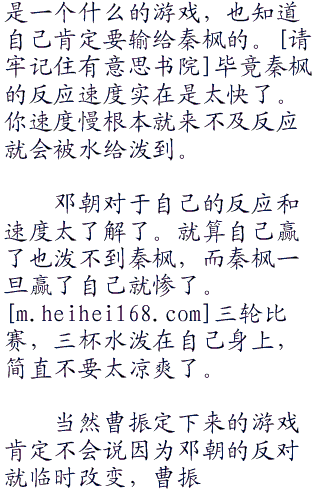 是一个什么的游戏，也知道
自己肯定要输给秦枫的。[请
牢记住有意思书院]毕竟秦枫
的反应速度实在是太快了。
你速度慢根本就来不及反应
就会被水给泼到。
邓朝对于自己的反应和
速度太了解了。就算自己赢
了也泼不到秦枫，而秦枫一
旦赢了自己就惨了。
[m.heihei168.com]三轮比
赛，三杯水泼在自己身上，
简直不要太凉爽了。
当然曹振定下来的游戏
肯定不会说因为邓朝的反对
就临时改变，曹振